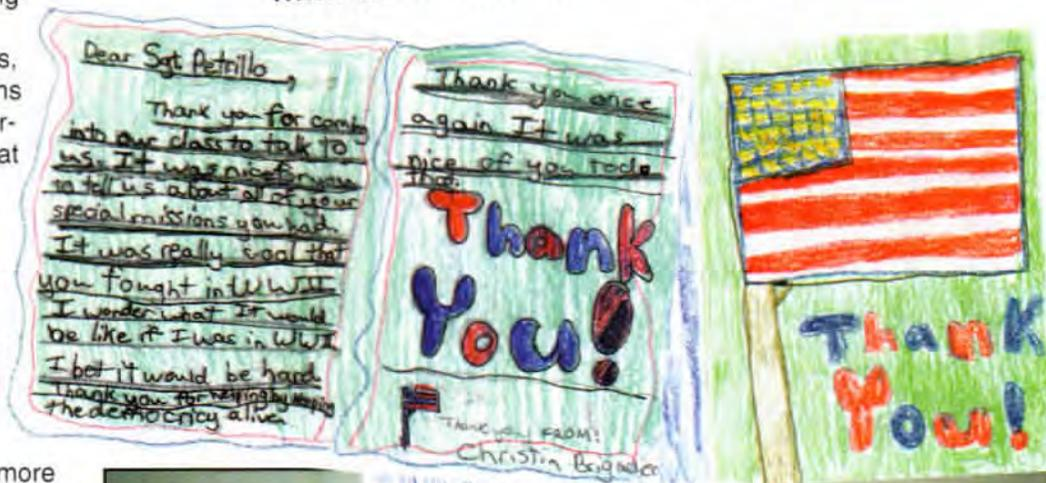 Dear Sgt Petrillo,
Thank you for coming
into our class to talk to
us. It was nice of you
to tell us about all of your
special missions you had.
It was really cool that
you fought in WWII
I wonder what It would
be like if I was in WWI
I bet it would be hard
Thank you for helping by keeping
the democracy alive.
Thank you once
again It was
nice of you to do
that.
Thank
You!
Thank you FROM!
Christin
Thank
You!
s,
at
more